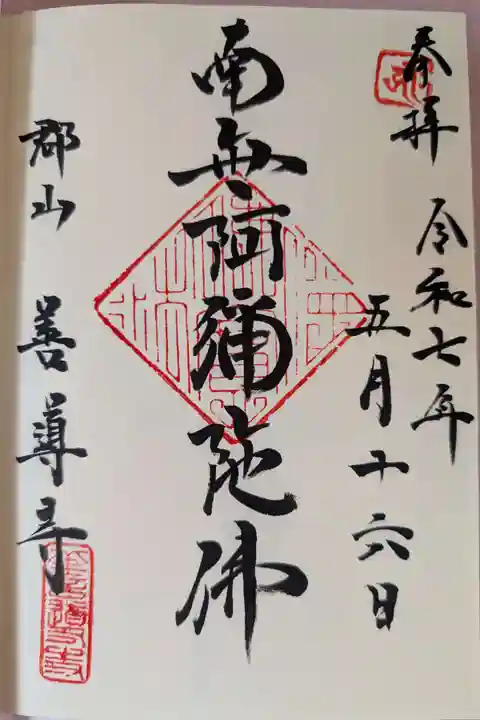 奉拝 令和七年
五月十六日
南無阿彌陀佛
郡山 善導寺